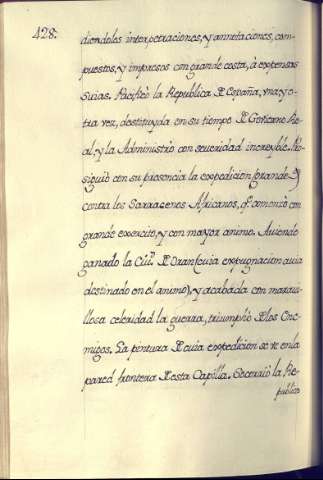 428:
diendoles interpretaciones, y annotaciones, com-
puestos, y impresos con grande costa, à expensas
Suias. Pacificò la Republica de España, una, y o-
tra vez, destituyda en su tiempo de Govierno Re-
al: y la Administrò con severidad increyble. Pro-
siguiò con su presencia la expedicion (grande)
contra los Sarracenos Africanos, qᵉ. comenzò con
grande exercito, y con mayor animo. Aviendo
ganado la Ciuᵈ. de Oran (cuia expugnacion avia
destinado en el animo), y acabada con maravi-
llosa celeridad la guerra, triumphò de los Ene-
migos. La pintura de cuia expedicion se ve en la
pared frontera de esta Capilla. Governò la Re-
publica